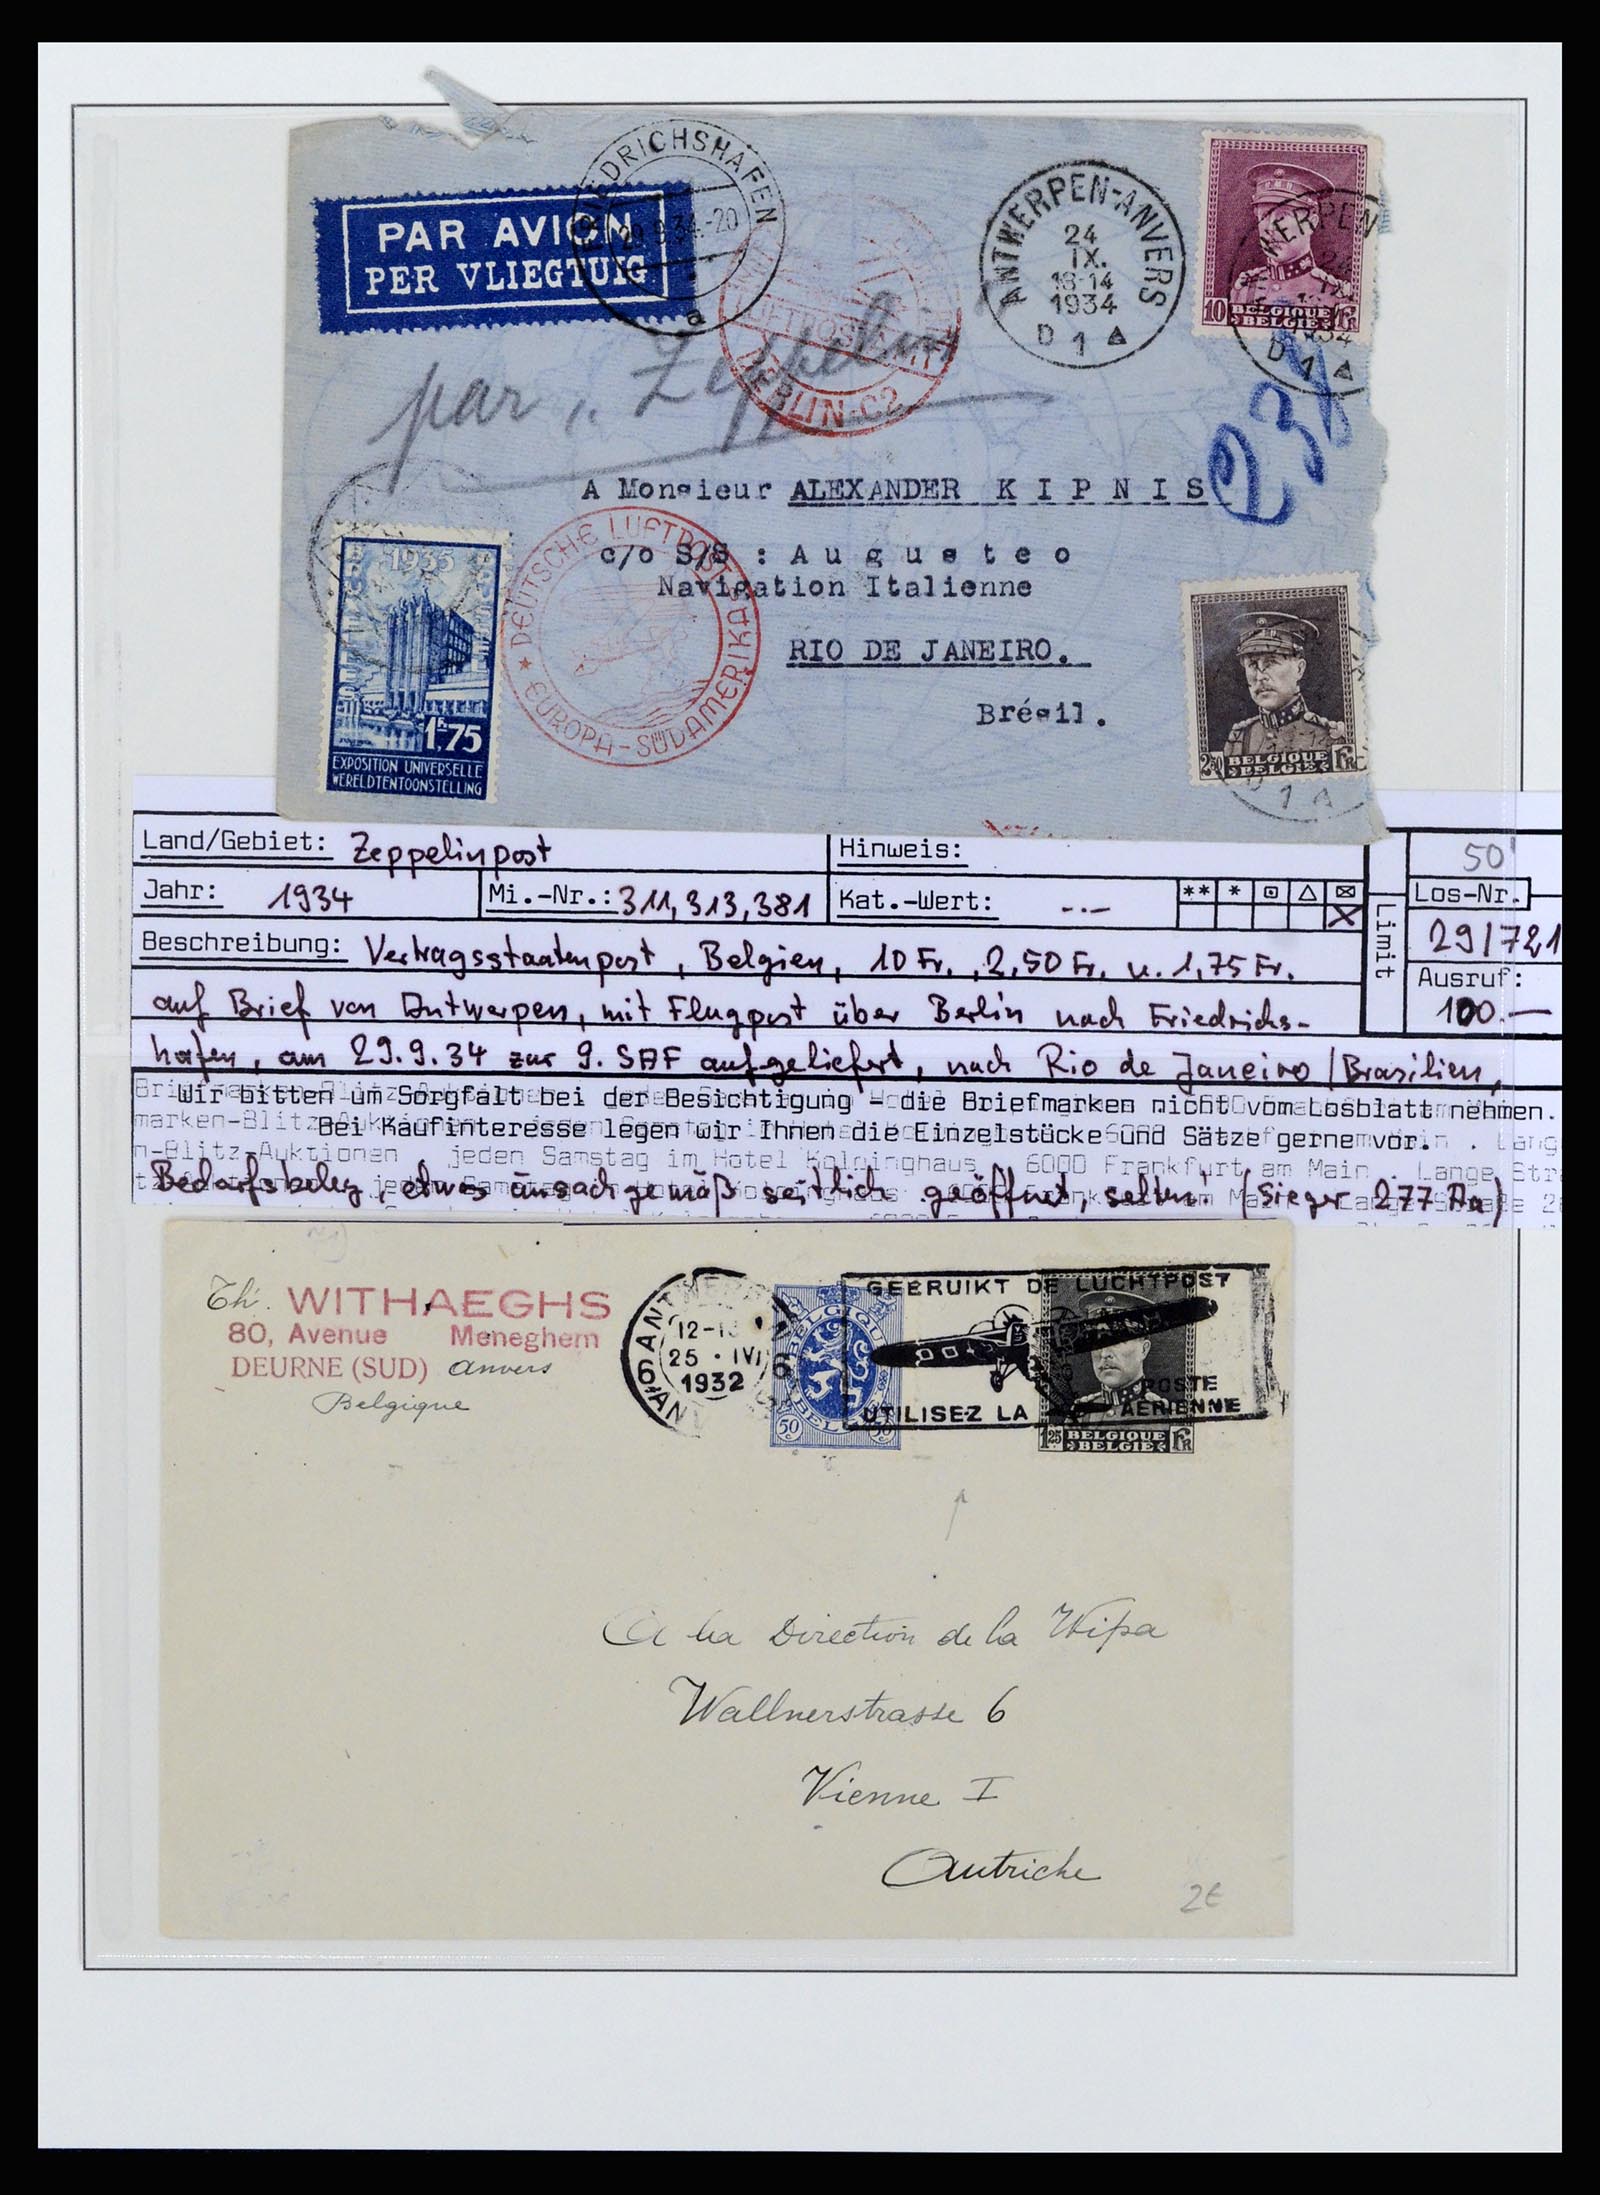 FRIEDRICHSHAFEN
29.9.34.-20
a
PAR AVION
PER VLIEGTUIG
ANTWERPEN-ANVERS
24
IX.
13-14
1934
D 1 A
10 BELGIQUE Fr
BELGIË
WERPEN
1934
D 1 A
LUFTPOST
BERLIN-C2
par „Zeppelin"
A Monsieur ALEXANDER K I P N I S
c/o S/S : A u g u s t e o
Navigation Italienne
RIO DE JANEIRO.
Brésil.
DEUTSCHE LUFTPOST
★ EUROPA-SÜDAMERIKA
1935
1Fr.75
EXPOSITION UNIVERSELLE
WERELDTENTOONSTELLING
2.50 BELGIQUE Frc
BELGIË
D 1 A
Land/Gebiet: Zeppelinpost
Hinweis:
50
Jahr: 1934
Mi.-Nr.: 311, 313, 381
Kat.-Wert: -.-
** *
Los-Nr.
29/721
Limit
Ausruf:
100.—
Beschreibung: Vertragsstaatenpost, Belgien, 10 Fr., 2,50 Fr. u. 1,75 Fr.
auf Brief von Antwerpen, mit Flugpost über Berlin nach Friedrichs-
hafen, am 29.9.34 zur 9. SAF aufgeliefert, nach Rio de Janeiro/Brasilien,
Wir bitten um Sorgfalt bei der Besichtigung - die Briefmarken nicht vom Losblatt nehmen.
Bei Kaufinteresse legen wir Ihnen die Einzelstücke und Sätze gerne vor.
n-Blitz-Auktionen jeden Samstag im Hotel Kolpinghaus 6000 Frankfurt am Main Lange Str
Bedarfsbeleg, etwas unsachgemäß seitlich geöffnet, selten! (Sieger 277 Aa)
Th. WITHAEGHS
80, Avenue Meneghem
DEURNE (SUD) Anvers
Belgique
ANTWERPEN
25 · IV
1932
6
BELGIQUE
BELGIË
50 50
GEBRUIKT DE LUCHTPOST
UTILISEZ LA POSTE
AERIENNE
1.25 BELGIQUE Fr
BELGIË
A la Direction de la Wipa
Wallnerstrasse 6
Vienne I
Autriche
2€